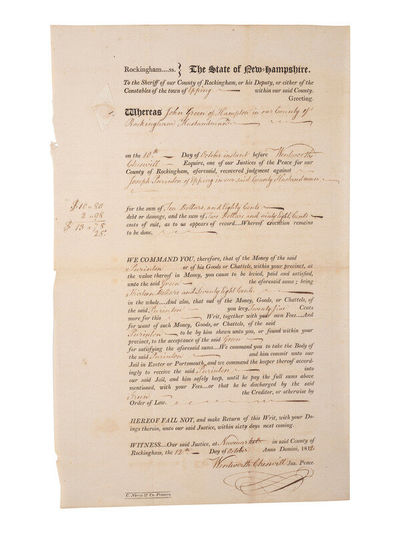 Rockingham....ss. } The State of New-Hampshire.
To the Sheriff of our County of Rockingham, or his Deputy, or either of the
Constables of the town of Epping within our said County.
Greeting.
Whereas John Green of Hampton in our County of
Rockingham Husbandman
on the 10th Day of October instant before Wentworth
Cheswill Esquire, one of our Justices of the Peace for our
County of Rockingham, aforesaid, recovered judgment against
Joseph Purinton of Epping in our said County Husbandman
for the sum of Ten Dollars and Eighty Cents
debt or damage, and the sum of Two Dollars and ninty Eight Cents
costs of suit, as to us appears of record...Whereof execution remains
to be done.
$ 10-80
2-98
$ 13-78
25
WE COMMAND YOU, therefore, that of the Money of the said
Purinton or of his Goods or Chattels, within your precinct, at
the value thereof in Money, you cause to be levied, paid and satisfied,
unto the said Green the aforesaid sums; being
Thirteen Dollars and Seventy Eight Cents
in the whole...And also, that out of the Money, Goods, or Chattels, of
the said Purinton you levy Twenty five Cents
more for this Writ, together with your own Fees...And
for want of such Money, Goods, or Chattels, of the said
Purinton to be by him shewn unto you, or found within your
precinct, to the acceptance of the said Green
for satisfying the aforesaid sums...We command you to take the Body of
the said Purinton and him commit unto our
Jail in Exeter or Portsmouth, and we command the keeper thereof accord-
ingly to receive the said Purinton into
our said Jail, and him safely keep, until he pay the full sums above
mentioned, with your Fees...or that he be discharged by the said
Green the Creditor, or otherwise by
Order of Law.
HEREOF FAIL NOT, and make Return of this Writ, with your Do-
ings therein, unto our said Justice, within sixty days next coming.
WITNESS...Our said Justice, at Newmarket in said County of
Rockingham, the 12th Day of October Anno Domini, 1812
Wentworth Cheswill Jus. Peace.
C. Norris & Co. Printers.